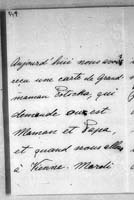 Aujourd'hui nous avons
reçu une carte de Grand
maman Potocka, qui
demande où est
Maman et Papa,
et quand nous
à Vienne.